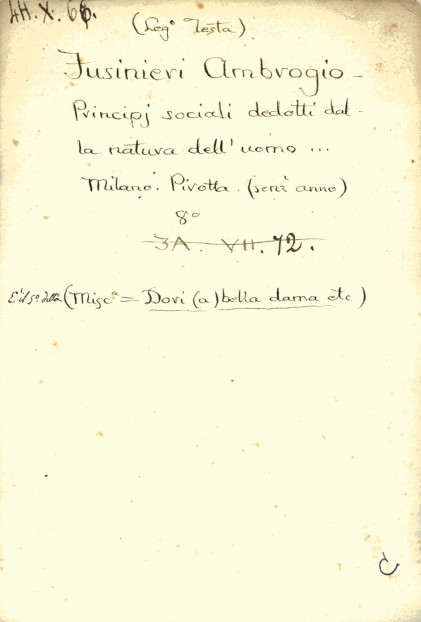 4H. X. 66.
(Leg.° Testa).
Fusinieri Ambrogio -
Principj sociali dedotti dal-
la natura dell'uomo ...
Milano. Pirotta. (senz'anno)
8°
3A. VII. 72.
E' il 5° della (Misc.ª = Dori (a) bella dama etc)
C